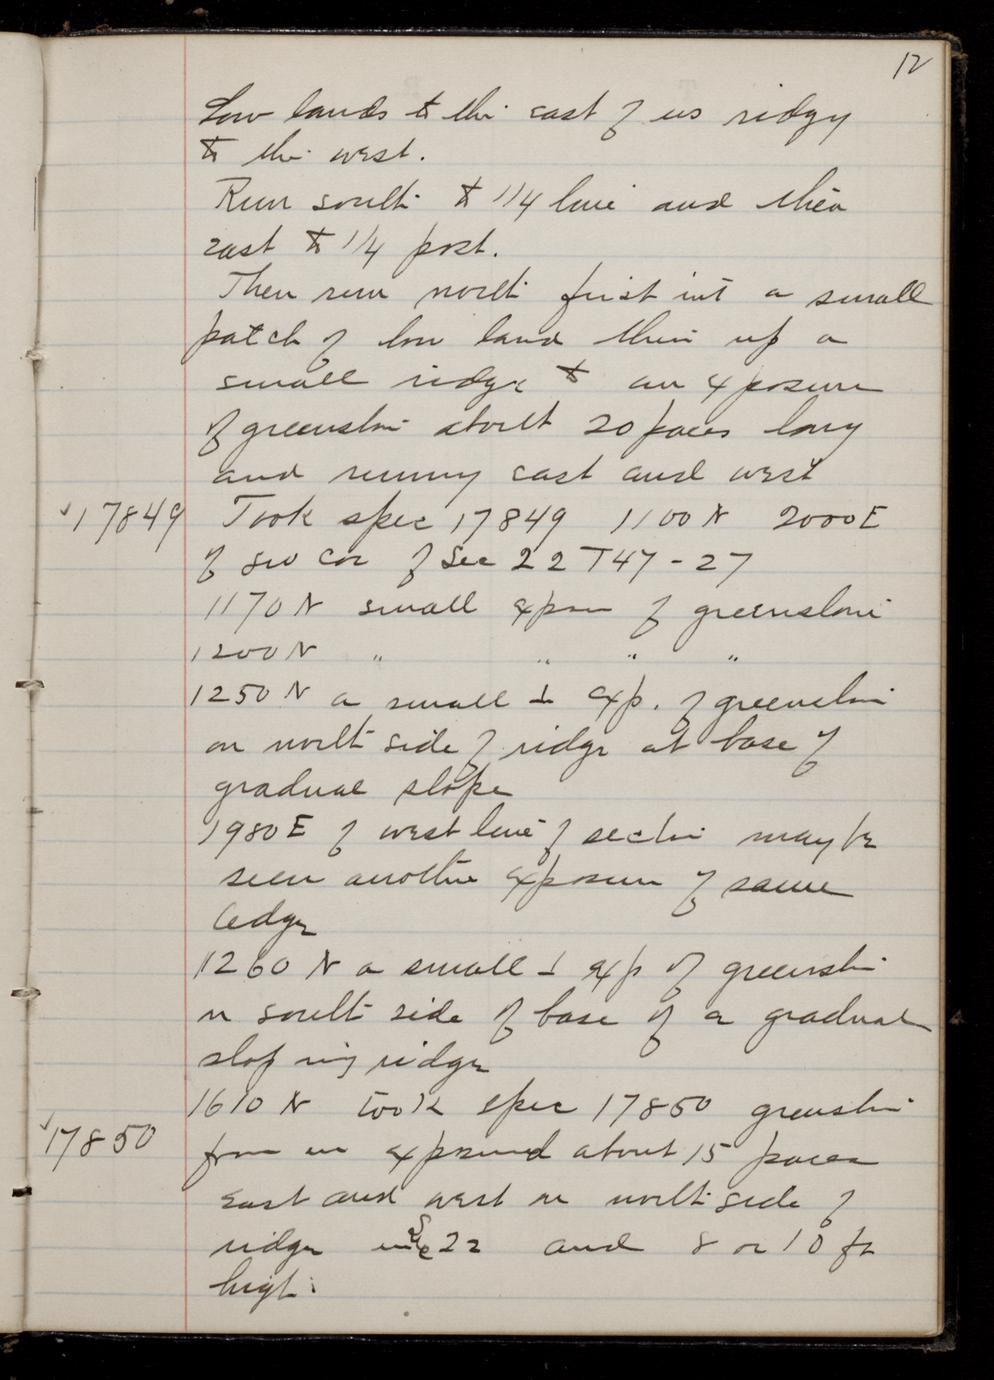 12
Low lands to the east of us ridgy
to the west.
Run south to 1/4 line and then
east to 1/4 post.
Then run north first into a small
patch of low land then up a
small ridge to an exposure
of greenstone about 20 paces long
and runing east and west
17849 Took spec 17849 1100 N 2000 E
of sw cor of Sec 22 T47-27
1170 N small expsn of greenstone
1200 N " " " "
1250 N a small ⊥ exp. of greenstone
on north side of ridge at base of
gradual slope
1980 E of west line of section may be
seen another exposure of same
ledge
1260 N a small ⊥ exp of greenstone
on south side of base of a gradual
sloping ridge
1610 N took spec 17850 greenstone
17850 from an exposure about 15 paces
East and west on north side of
ridge in Sec 22 and 8 or 10 ft
high.